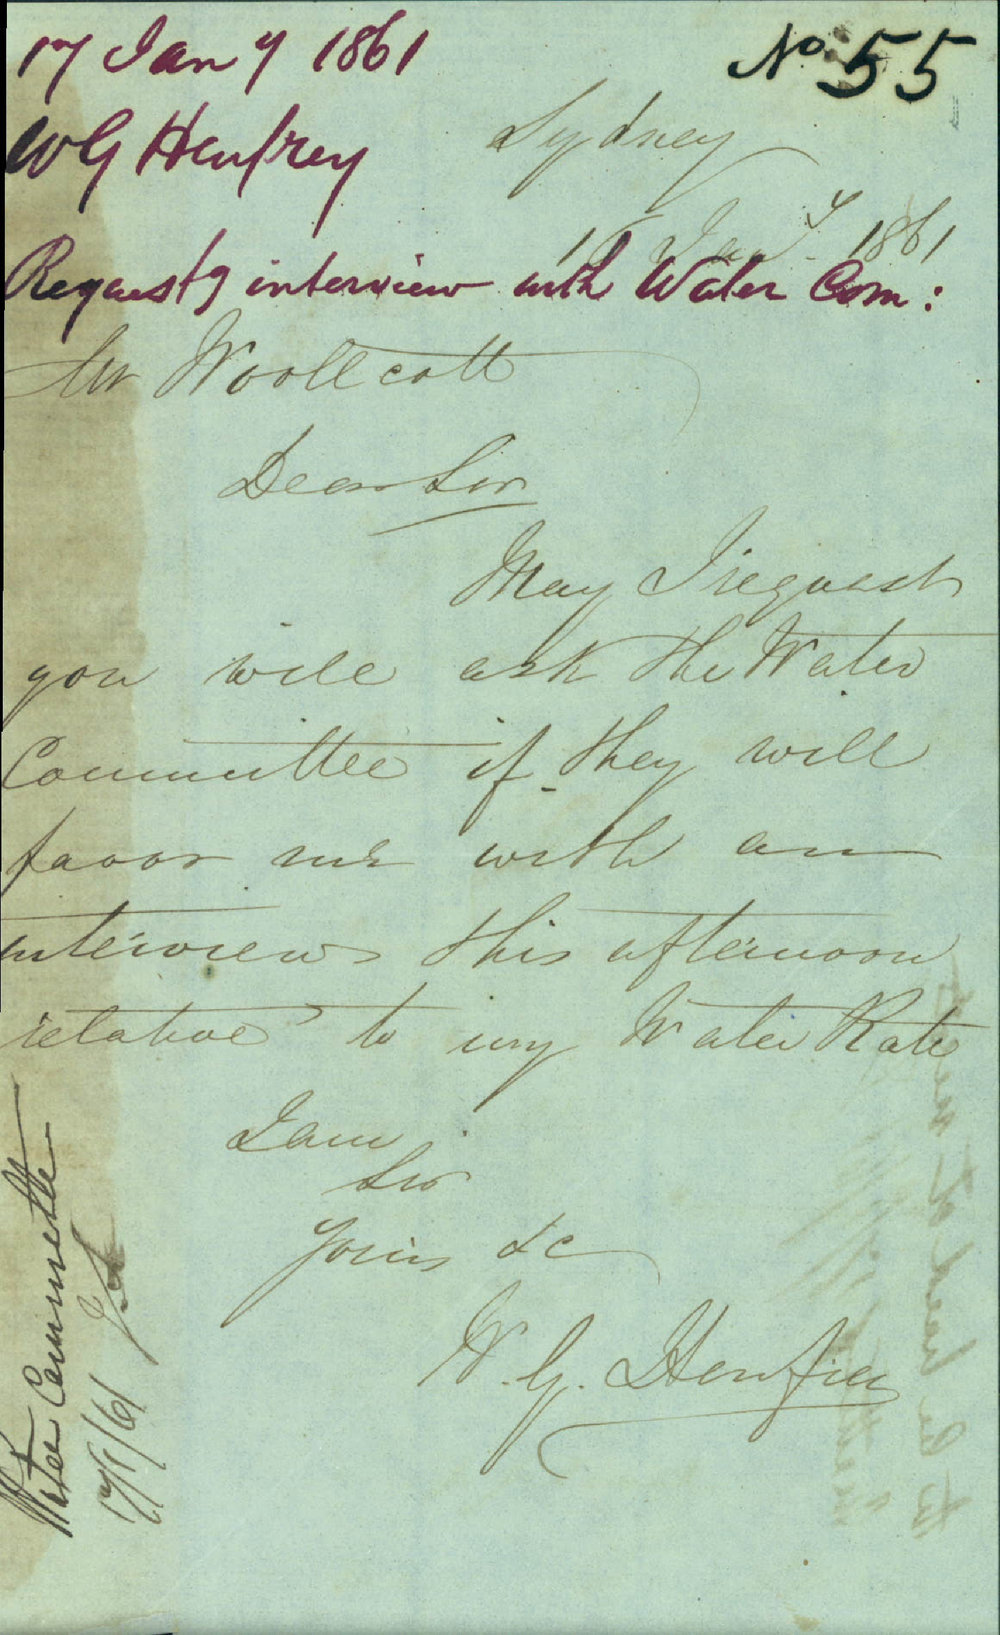 17 Jany 1861
No 55
W G Henfrey
Sydney
Jany 1861
Requestg interview with Water Com:
Mr Woollcott
Dear Sir
May I request
you will ask the Water
Committee if they will
favor me with an
interview this afternoon
relative to my Water Rate
I am
Sir
Yours &c
W. G. Henfrey
Water Committee
17/1/61